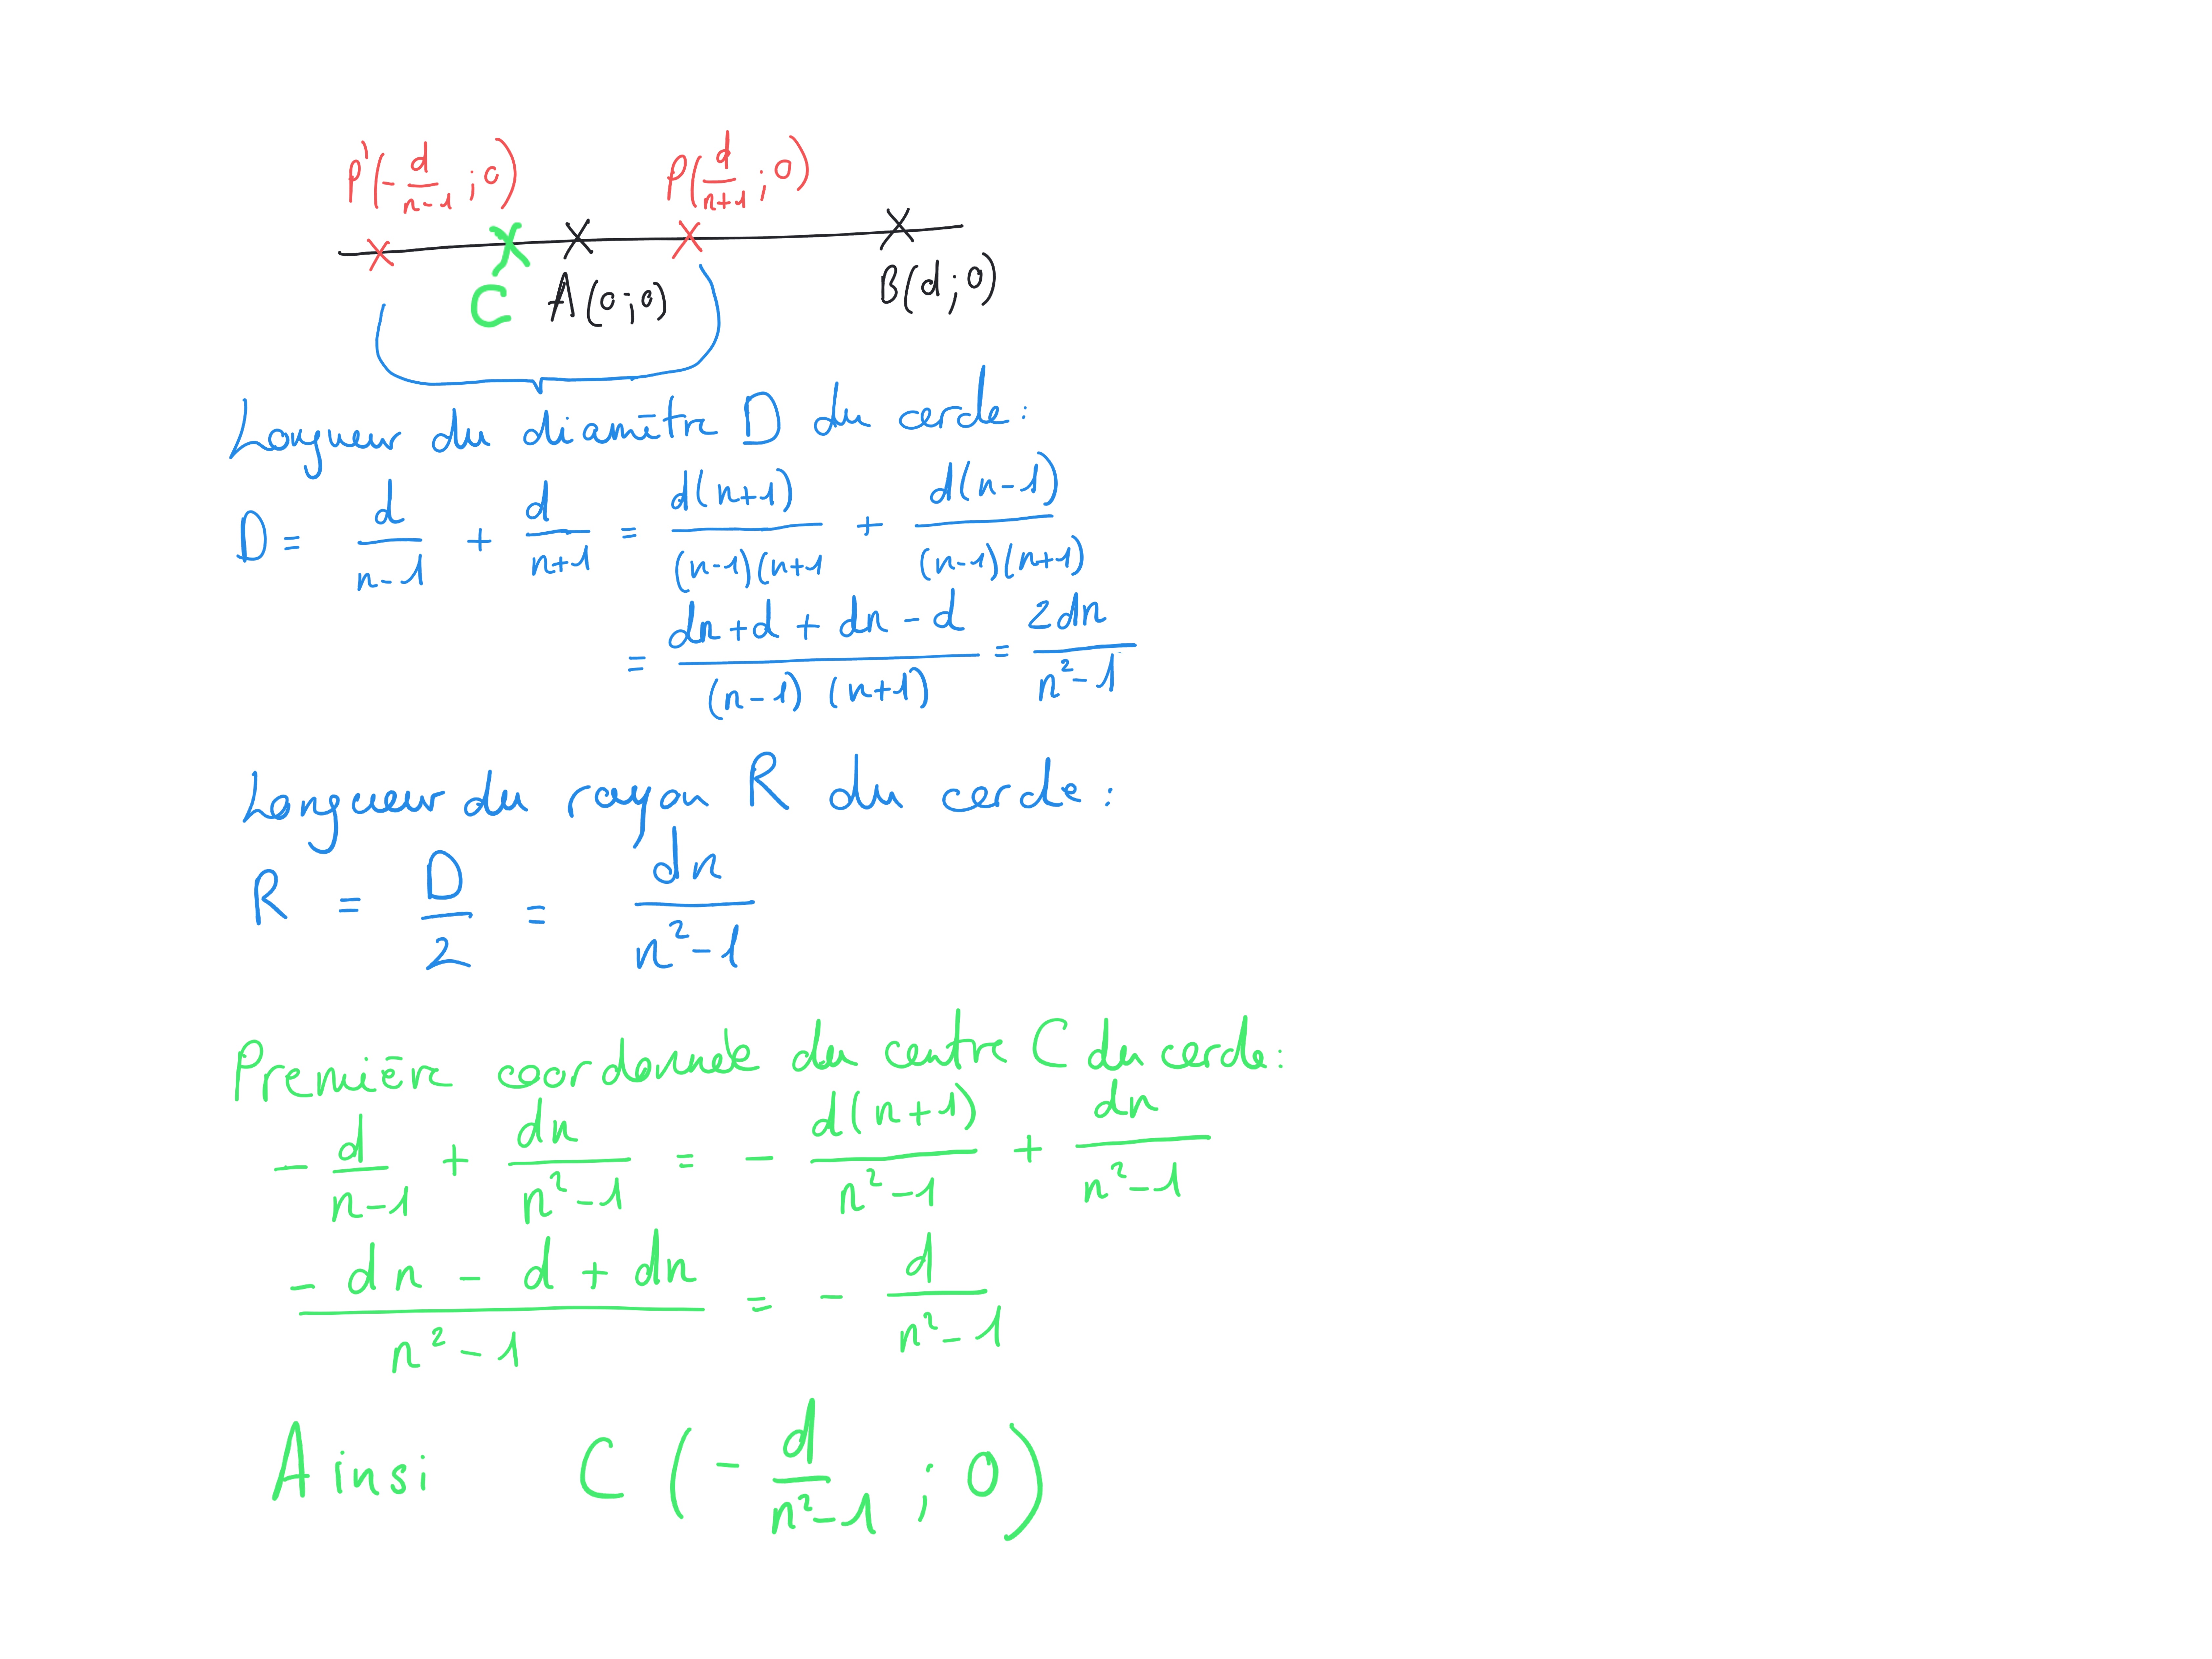 P'(-d/(n-1) ; 0) P(d/(n+1) ; 0)
C A(0 ; 0) B(d ; 0)
Longueur du diamètre D du cercle :
D = d/(n-1) + d/(n+1) = d(n+1)/((n-1)(n+1 + d(n-1)/((n-1)(n+1))
= (dn + d + dn - d)/((n-1)(n+1)) = 2dn/(n²-1)
Longueur du rayon R du cercle :
R = D/2 = dn/(n²-1)
Première coordonnée du centre C du cercle :
- d/(n-1) + dn/(n²-1) = - d(n+1)/(n²-1) + dn/(n²-1)
(- dn - d + dn)/(n²-1) = - d/(n²-1)
Ainsi C(- d/(n²-1) ; 0)